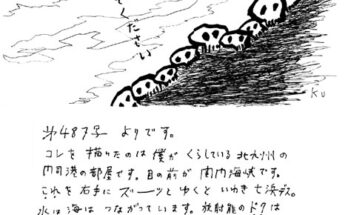 ください
KU
第487号 よりです。
コレを描いたのは僕がくらしている北九州の
門司港の部屋です。目の前が関門海峡です。
これを右手にズーーッとゆくといわき七浜デス。
水は海はつながっています。放射能のドクは